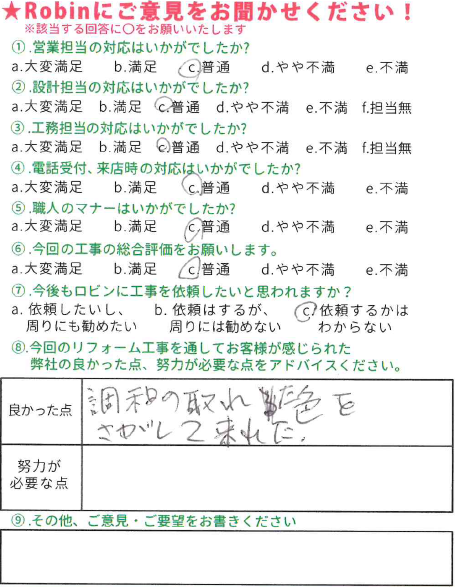 ★Robinにご意見をお聞かせください！
※該当する回答に〇をお願いいたします
①.営業担当の対応はいかがでしたか?
a.大変満足 b.満足 c.普通 d.やや不満 e.不満
②.設計担当の対応はいかがでしたか?
a.大変満足 b.満足 c.普通 d.やや不満 e.不満 f.担当無
③.工務担当の対応はいかがでしたか?
a.大変満足 b.満足 c.普通 d.やや不満 e.不満 f.担当無
④.電話受付、来店時の対応はいかがでしたか?
a.大変満足 b.満足 c.普通 d.やや不満 e.不満
⑤.職人のマナーはいかがでしたか?
a.大変満足 b.満足 c.普通 d.やや不満 e.不満
⑥.今回の工事の総合評価をお願いします。
a.大変満足 b.満足 c.普通 d.やや不満 e.不満
⑦.今後もロビンに工事を依頼したいと思われますか？
a. 依頼したいし、 b. 依頼はするが、 c. 依頼するかは
周りにも勧めたい 周りには勧めない わからない
⑧.今回のリフォーム工事を通してお客様が感じられた
弊社の良かった点、努力が必要な点をアドバイスください。
良かった点
調和の取れた色を
さがして来れた.
努力が
必要な点
⑨.その他、ご意見・ご要望をお書きください